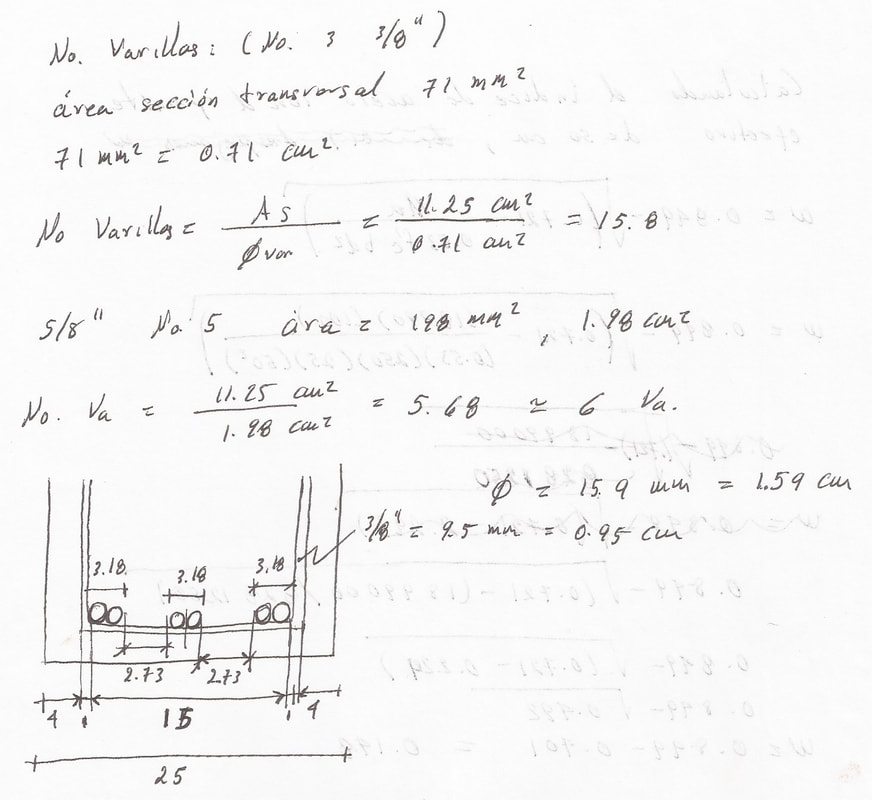 No. Varillas: (No. 3 3/8")
área sección transversal 71 mm²
71 mm² = 0.71 cm².
No Varillas = As / Øvar = 11.25 cm² / 0.71 cm² = 15.8
5/8" No. 5 área = 198 mm², 1.98 cm²
No. Va = 11.25 cm² / 1.98 cm² = 5.68 ≃ 6 Va.
Ø = 15.9 mm = 1.59 cm
3/8" = 9.5 mm = 0.95 cm
3.18 3.18 3.18
2.73 2.73
4 1 15 1 4
25